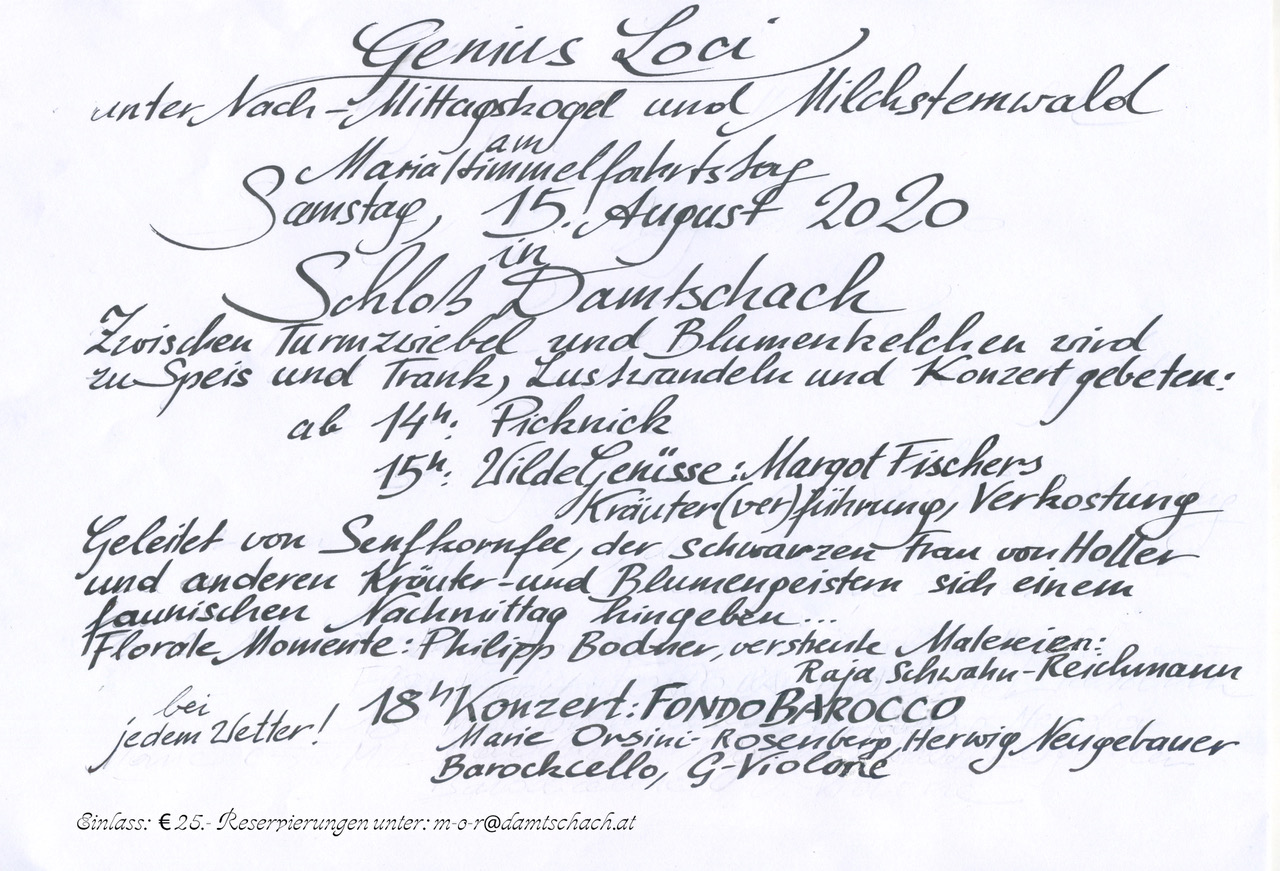 Genius Loci
unter Nach-Mittagskogel und Milchsternwald
am
Maria Himmelfahrtstag
Samstag, 15. August 2020
in
Schloß Damtschach
Zwischen Turmzwiebel und Blumenkelchen wird
zu Speis und Trank, Lustwandeln und Konzert gebeten:
ab 14h: Picknick
15h: Wilde Genüsse: Margot Fischers
Kräuter(ver)führung, Verkostung
Geleitet von Senfkornfee, der schwarzen Frau von Holler
und anderen Kräuter-und Blumengeistern sich einem
faunischen Nachmittag hingeben...
Florale Momente: Philipp Bodner, versteckte Malereien:
Raja Schwahn-Reichmann
bei
jedem Wetter!
18h Konzert: FONDO BAROCCO
Marie Orsini-Rosenberg, Herwig Neugebauer
Barockcello, G-Violone
Einlass: € 25.- Reservierungen unter: m-o-r@damtschach.at